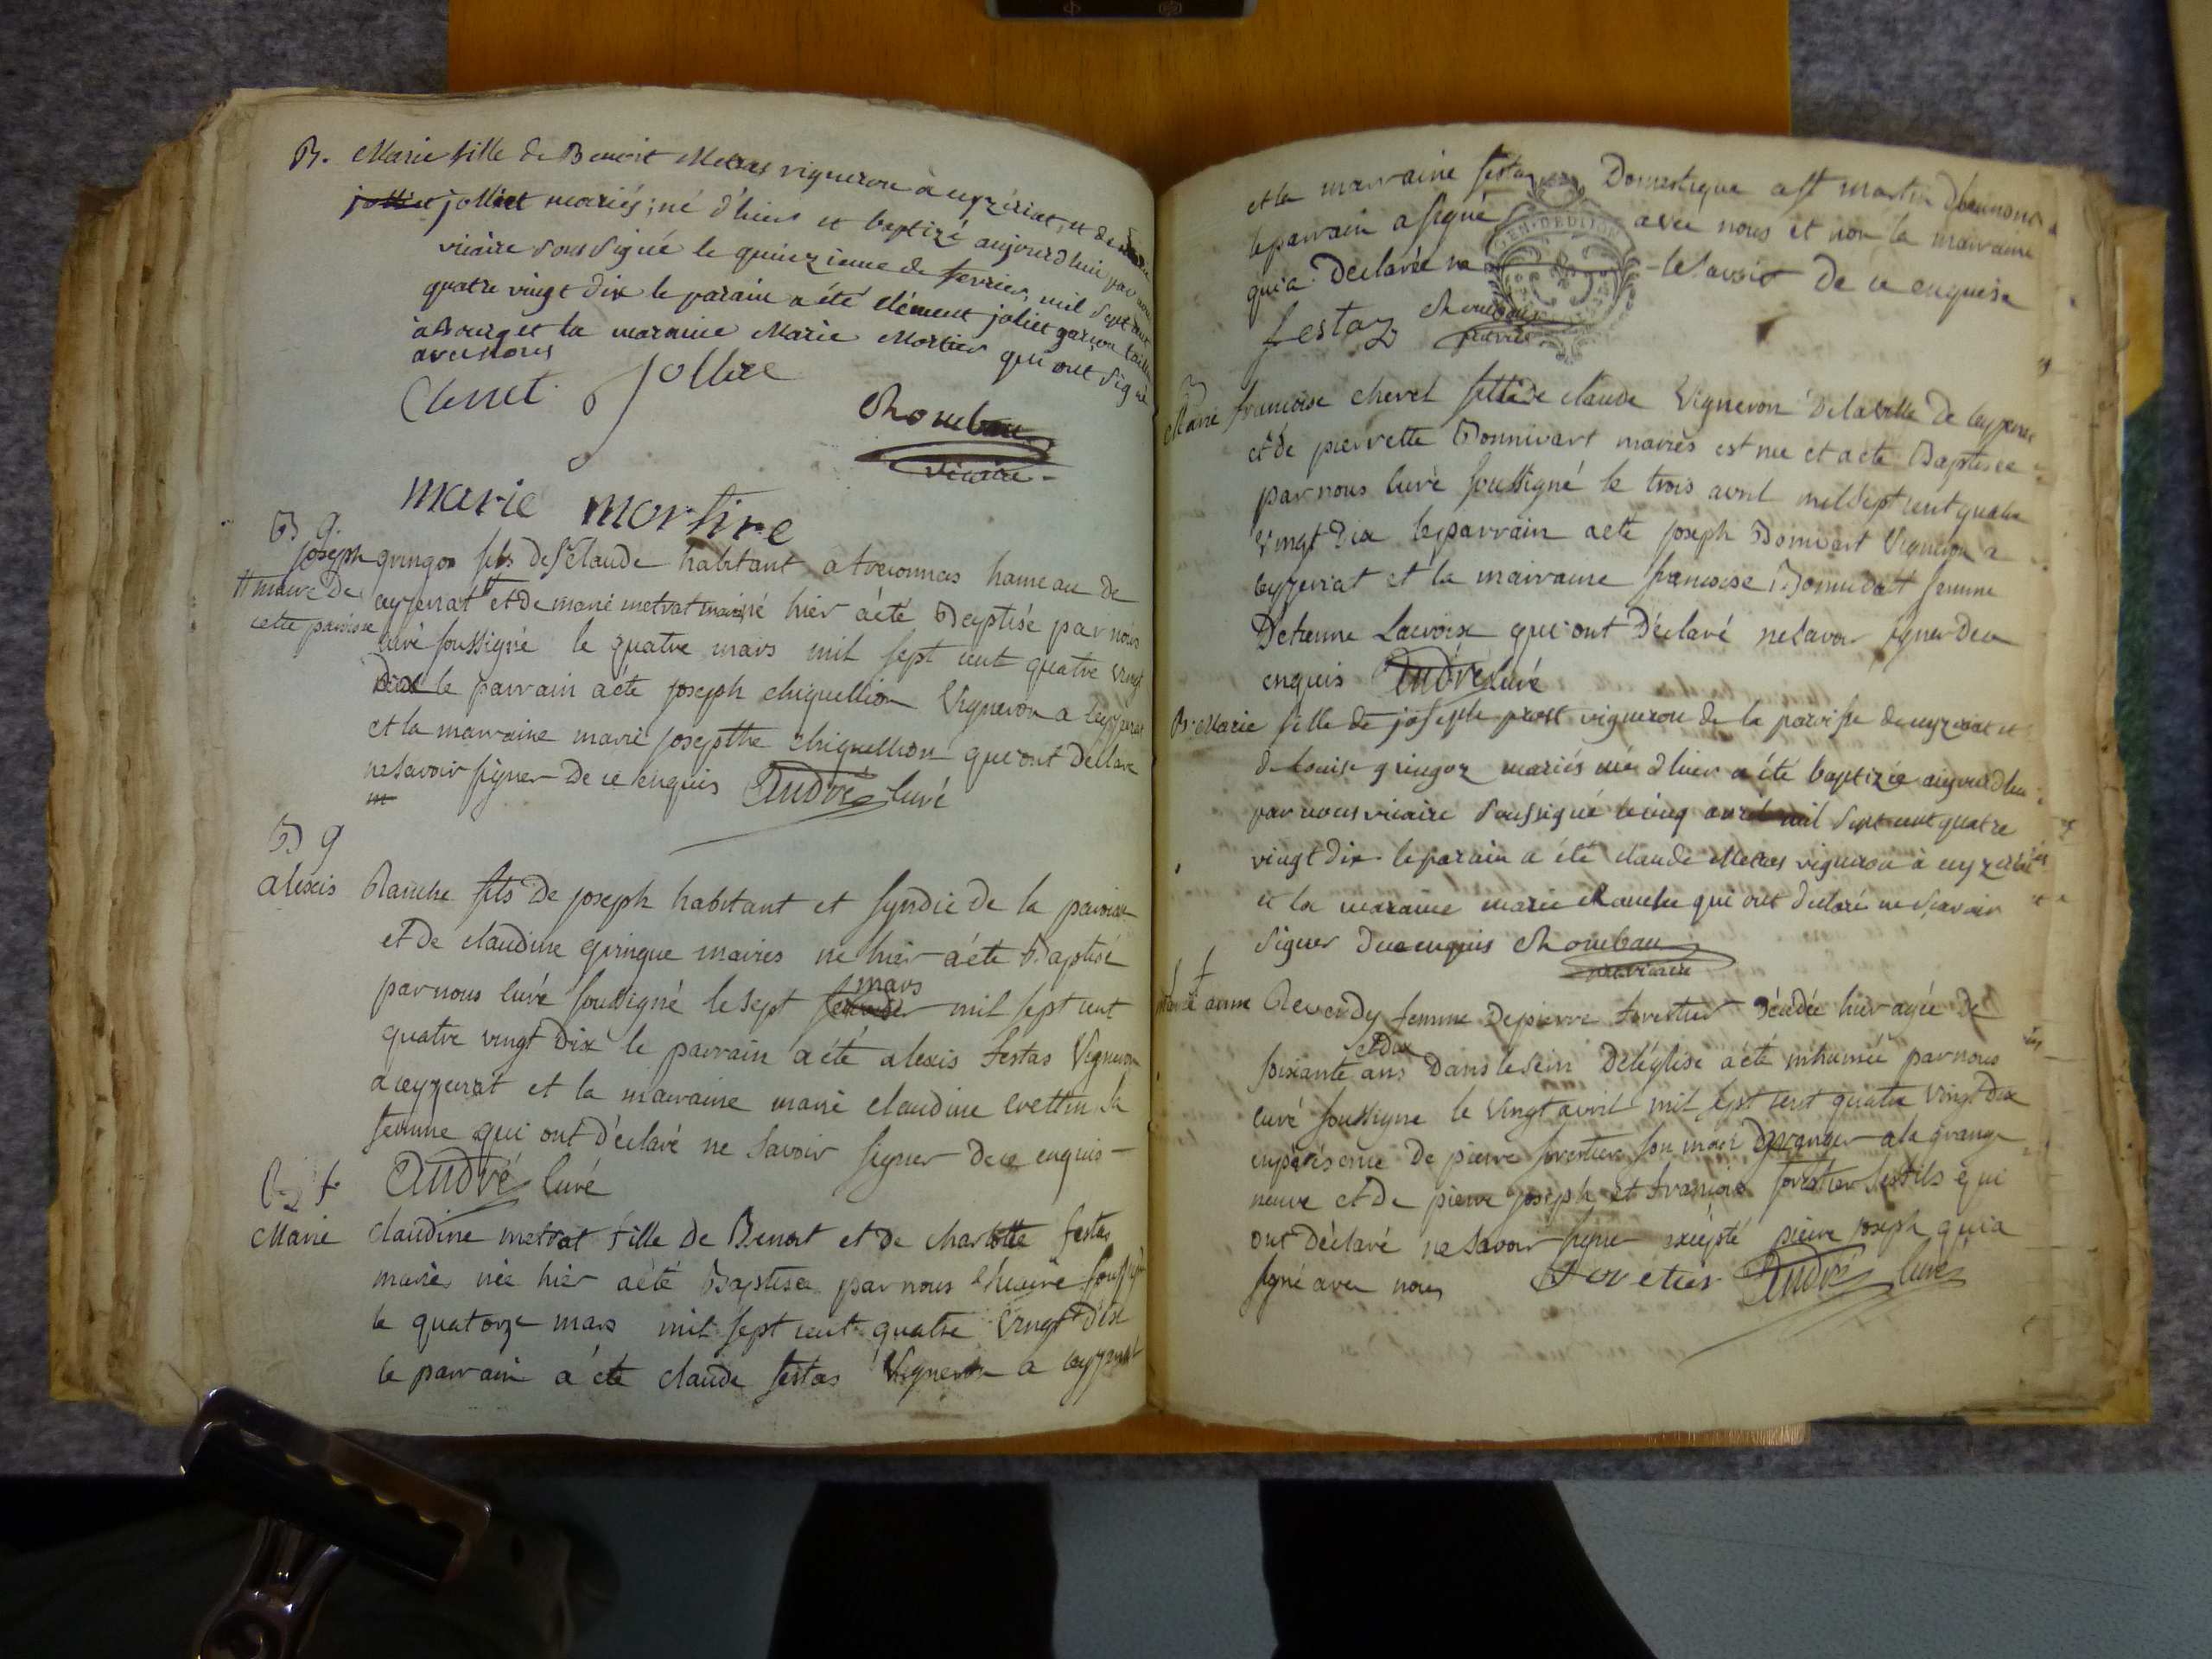 B. Marie fille de Benoit Metras vigneron à ceyzériat, et de
jolliet jolliet mariés; né d'hier et baptizé aujourd'hui par nous
vicaire soussigné le quinzieme de fevrier, mil sept cent
quatre vingt dix le parain a été clément joliet garçon tailleur
à Bourg et la maraine Marie Mortier qui ont signé
avec nous
Clemet jolliet
Chombau
vicaire
marie mortire
B g.
joseph gringoz fils de sr claude habitant a treconnas hameau de
# mairé de ceyzeriat # et de marie metrat né hier a été Baptisé par nous
cette paroisse curé soussigné le quatre mars mil sept cent quatre vingt
Dix le parrain a été joseph chiquellion Vigneron a ceyzeriat
et la marraine marie josephte chiquellion qui ont declaré
ne savoir signer De ce enquis André curé
B g
alexis Ranche fils De joseph habitant et syndic de la paroisse
et de claudine gringue mairés né hier a été Baptisé
par nous curé soussigné le sept mars mil sept cent
quatre vingt Dix le parrain a été alexis festas Vigneron
a ceyzeriat et la marraine marie claudine sa
femme qui ont déclaré ne savoir signer de ce enquis
André curé
B f
Marie claudine metrat fille de Benoit et de charlotte festas
mariés née hier a été Baptisée par nous curé soussigné
le quatorze mars mil sept cent quatre vingt Dix
le parrain a été claude festas Vigneron a ceyzeriat
et la marraine festaz Domestique a st martin
le parrain a signé avec nous et non la marraine
qui a Declarée ne le savoir De ce enquise
GEN. DE DIJON
festaz Chombau
Marie francoise chevel fille de claude Vigneron De la ville de ceyzeriat
et de pierrette Bonnivart mairés est née et a été Baptisée
par nous curé soussigné le trois avril mil sept cent quatre
vingt Dix le parrain a été joseph Bonnivart Vigneron a
ceyzeriat et la marraine francoise femme
D'etienne Lacroix qui ont Déclaré ne savoir signer De ce
enquis André curé
B. Marie fille de joseph prost vigneron de la paroisse de ceyzeriat et
de Louise gringoz mariés née d'hier a été baptizée aujourd'hui
par nous vicaire soussigné le cinq avril mil sept cent quatre
vingt dix le parain a été claude Metras vigneron à ceyzeriat
et la maraine marie Ranche qui ont declaré ne sçavoir
signer de ce enquis Chombau
vicaire
f
Marie anne Reverdy femme De pierre forestier Décédée hier agée de
soixante et Dix ans Dans le sein De l'eglise a été inhumée par nous
curé soussigné le vingt avril mil sept cent quatre vingt Dix
en présence De pierre forestier son mari granger a la grange
neuve et De pierre joseph et francois forestier ses fils qui
ont Déclaré ne savoir signer excepté pierre joseph qui a
signé avec nous Foretier André curé